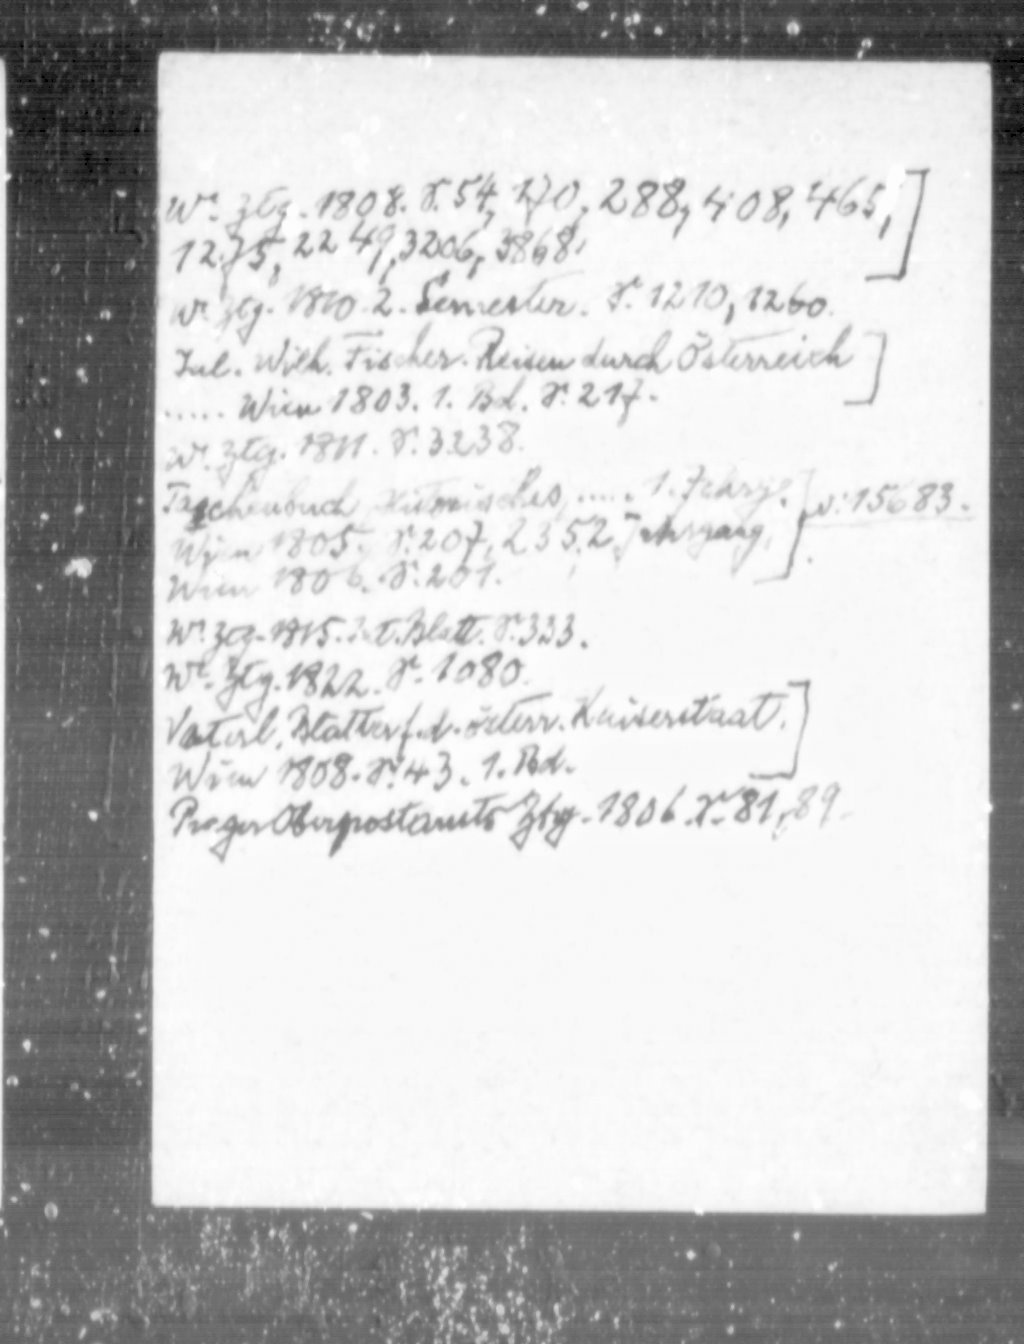 Wr. Ztg. 1808. S. 54, 170, 288, 408, 465,
1275, 2249, 3206, 3868.
Wr. Ztg. 1810. 2. Semester. S. 1210, 1260.
Jul. Wilh. Fischer. Reisen durch Österreich
..... Wien 1803. 1. Bd. S. 217.
Wr. Ztg. 1811. S. 3238.
Taschenbuch, ..... 1. Jahrg. s. 15683.
Wien 1805. S. 207, 235, 2 Jahrgang,
Wien 1806. S. 201.
Wr. Ztg. 1815. Int. Blatt. S. 333.
Wr. Ztg. 1822. S. 1080.
Vaterl. Blätter f. d. österr. Kaiserstaat.
Wien 1808. S. 43. 1. Bd.
Prager Oberpostamts Ztg. 1806. S. 81, 89.